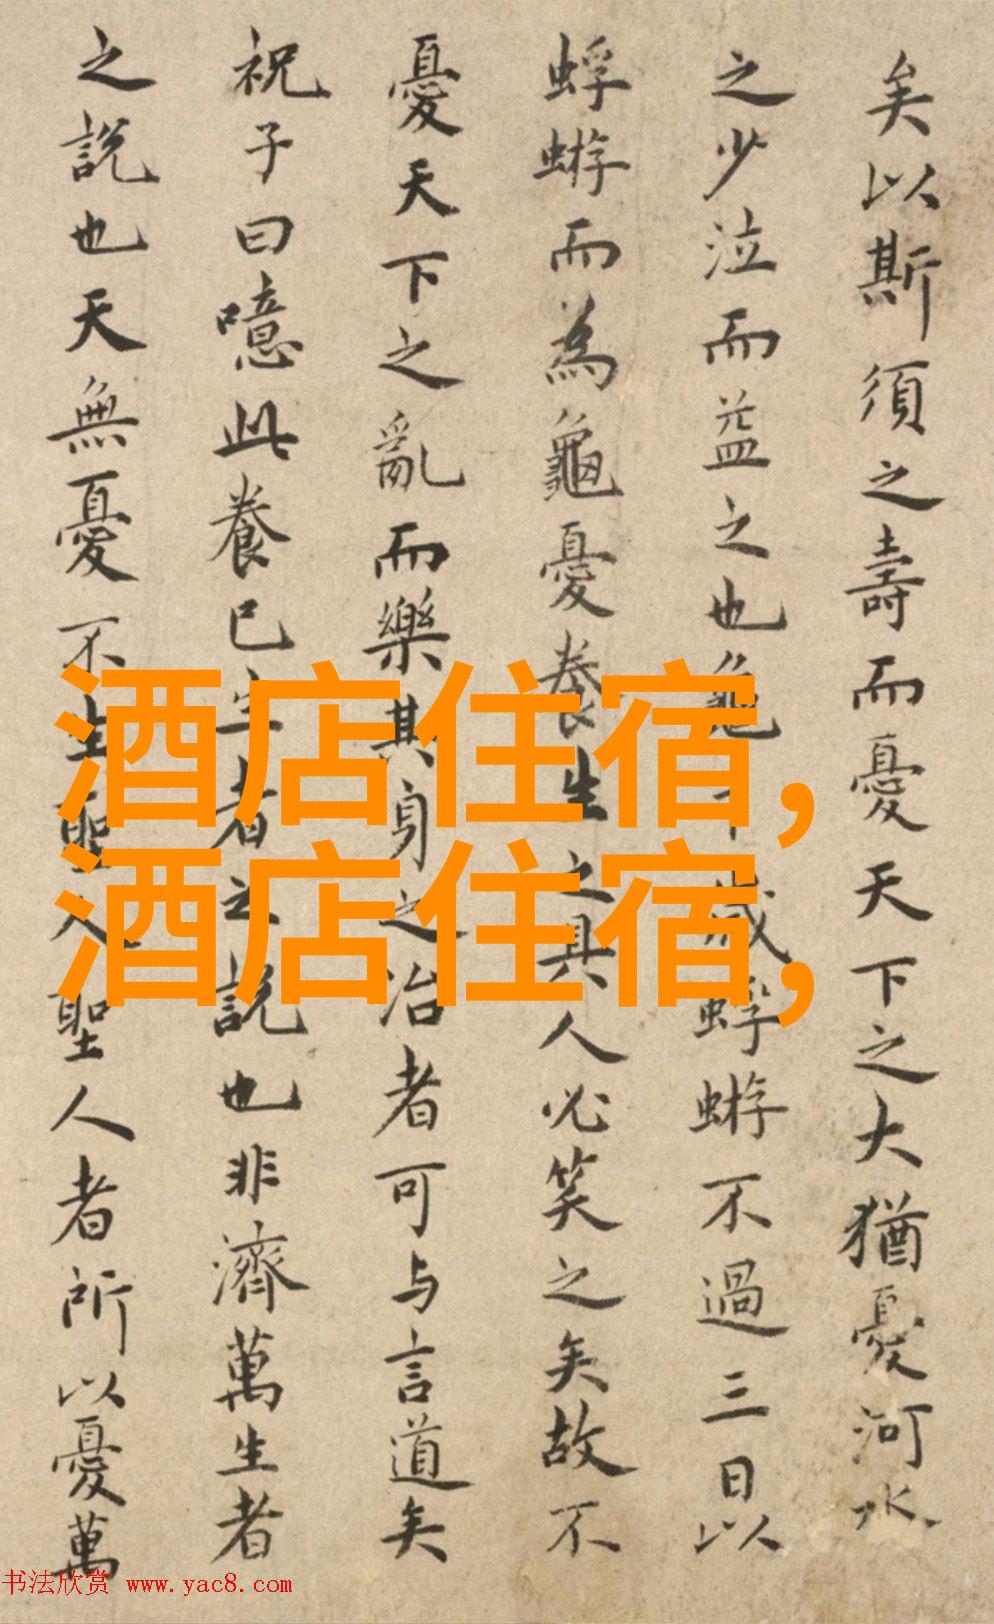 矣以斯須之壽而憂天下之大猶憂河水
之少泣而益之也龜千歲蜉蝣不過三日以
蜉蝣而為龜憂養生之具人必笑之矣故不
憂天下之亂而樂其身之治者可与言道矣
祝子曰噫此養已生者之說也非濟萬生者
之說也天無憂不生聖人聖人者所以憂萬
酒店住宿,
酒店住宿,
书法欣赏 www.yac8.com